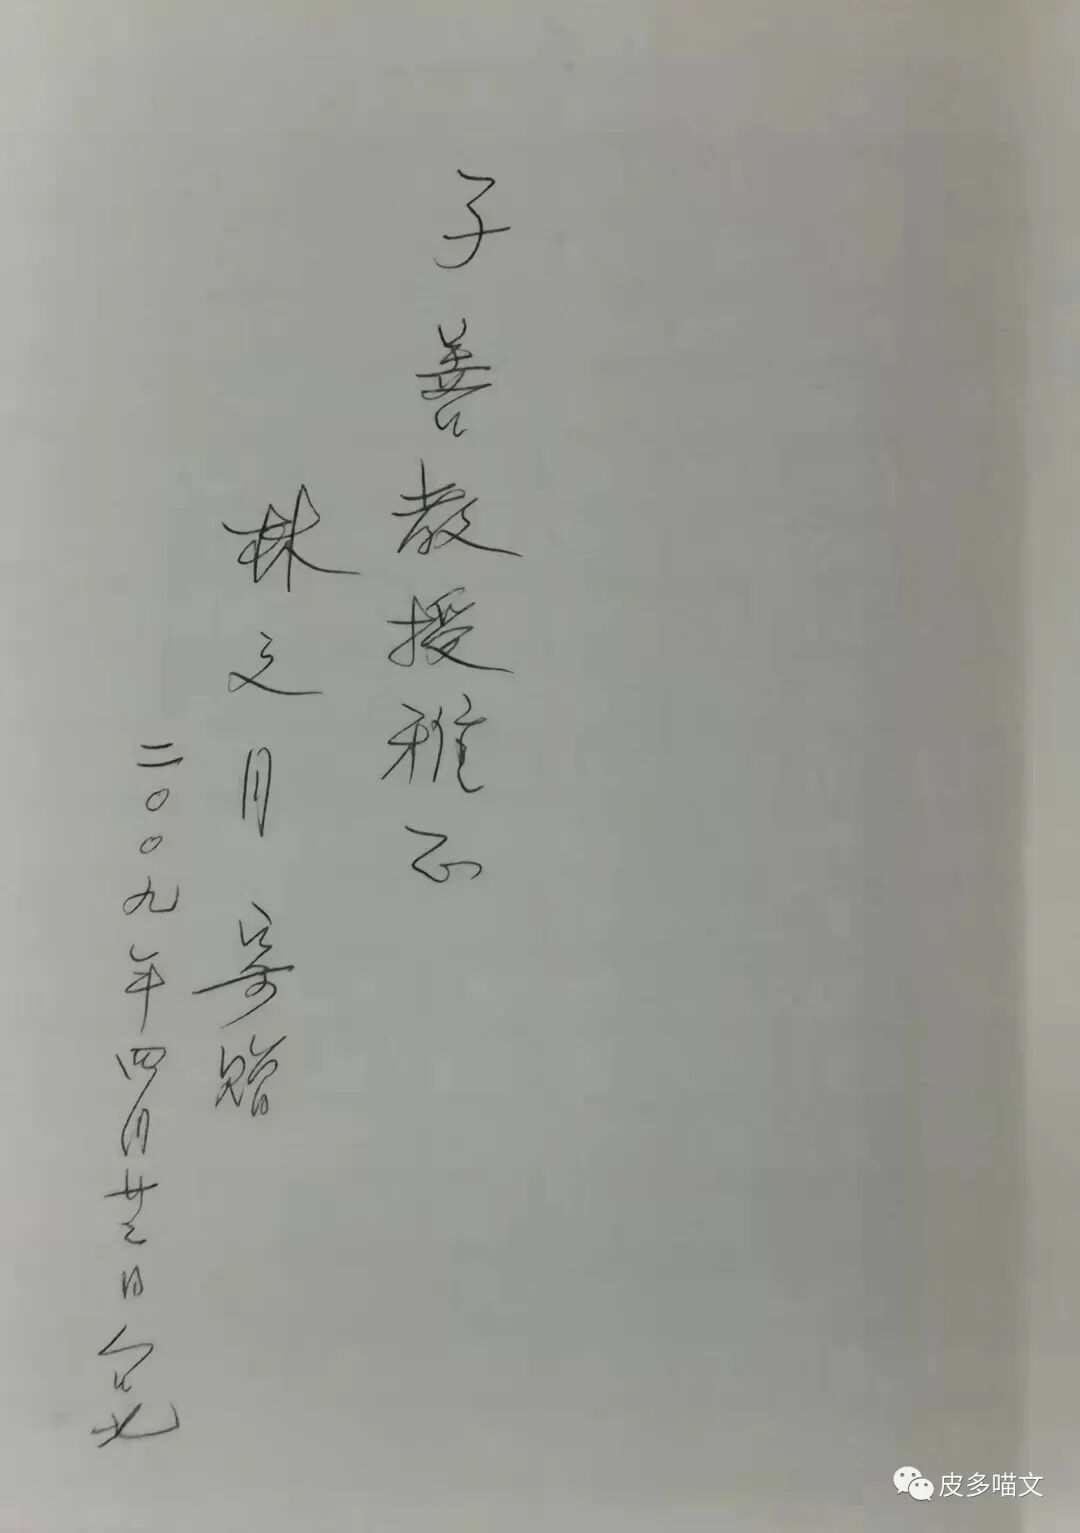 子善教授雅正
林文月 寄贈
二〇〇九年四月廿二日台北
皮多喵文